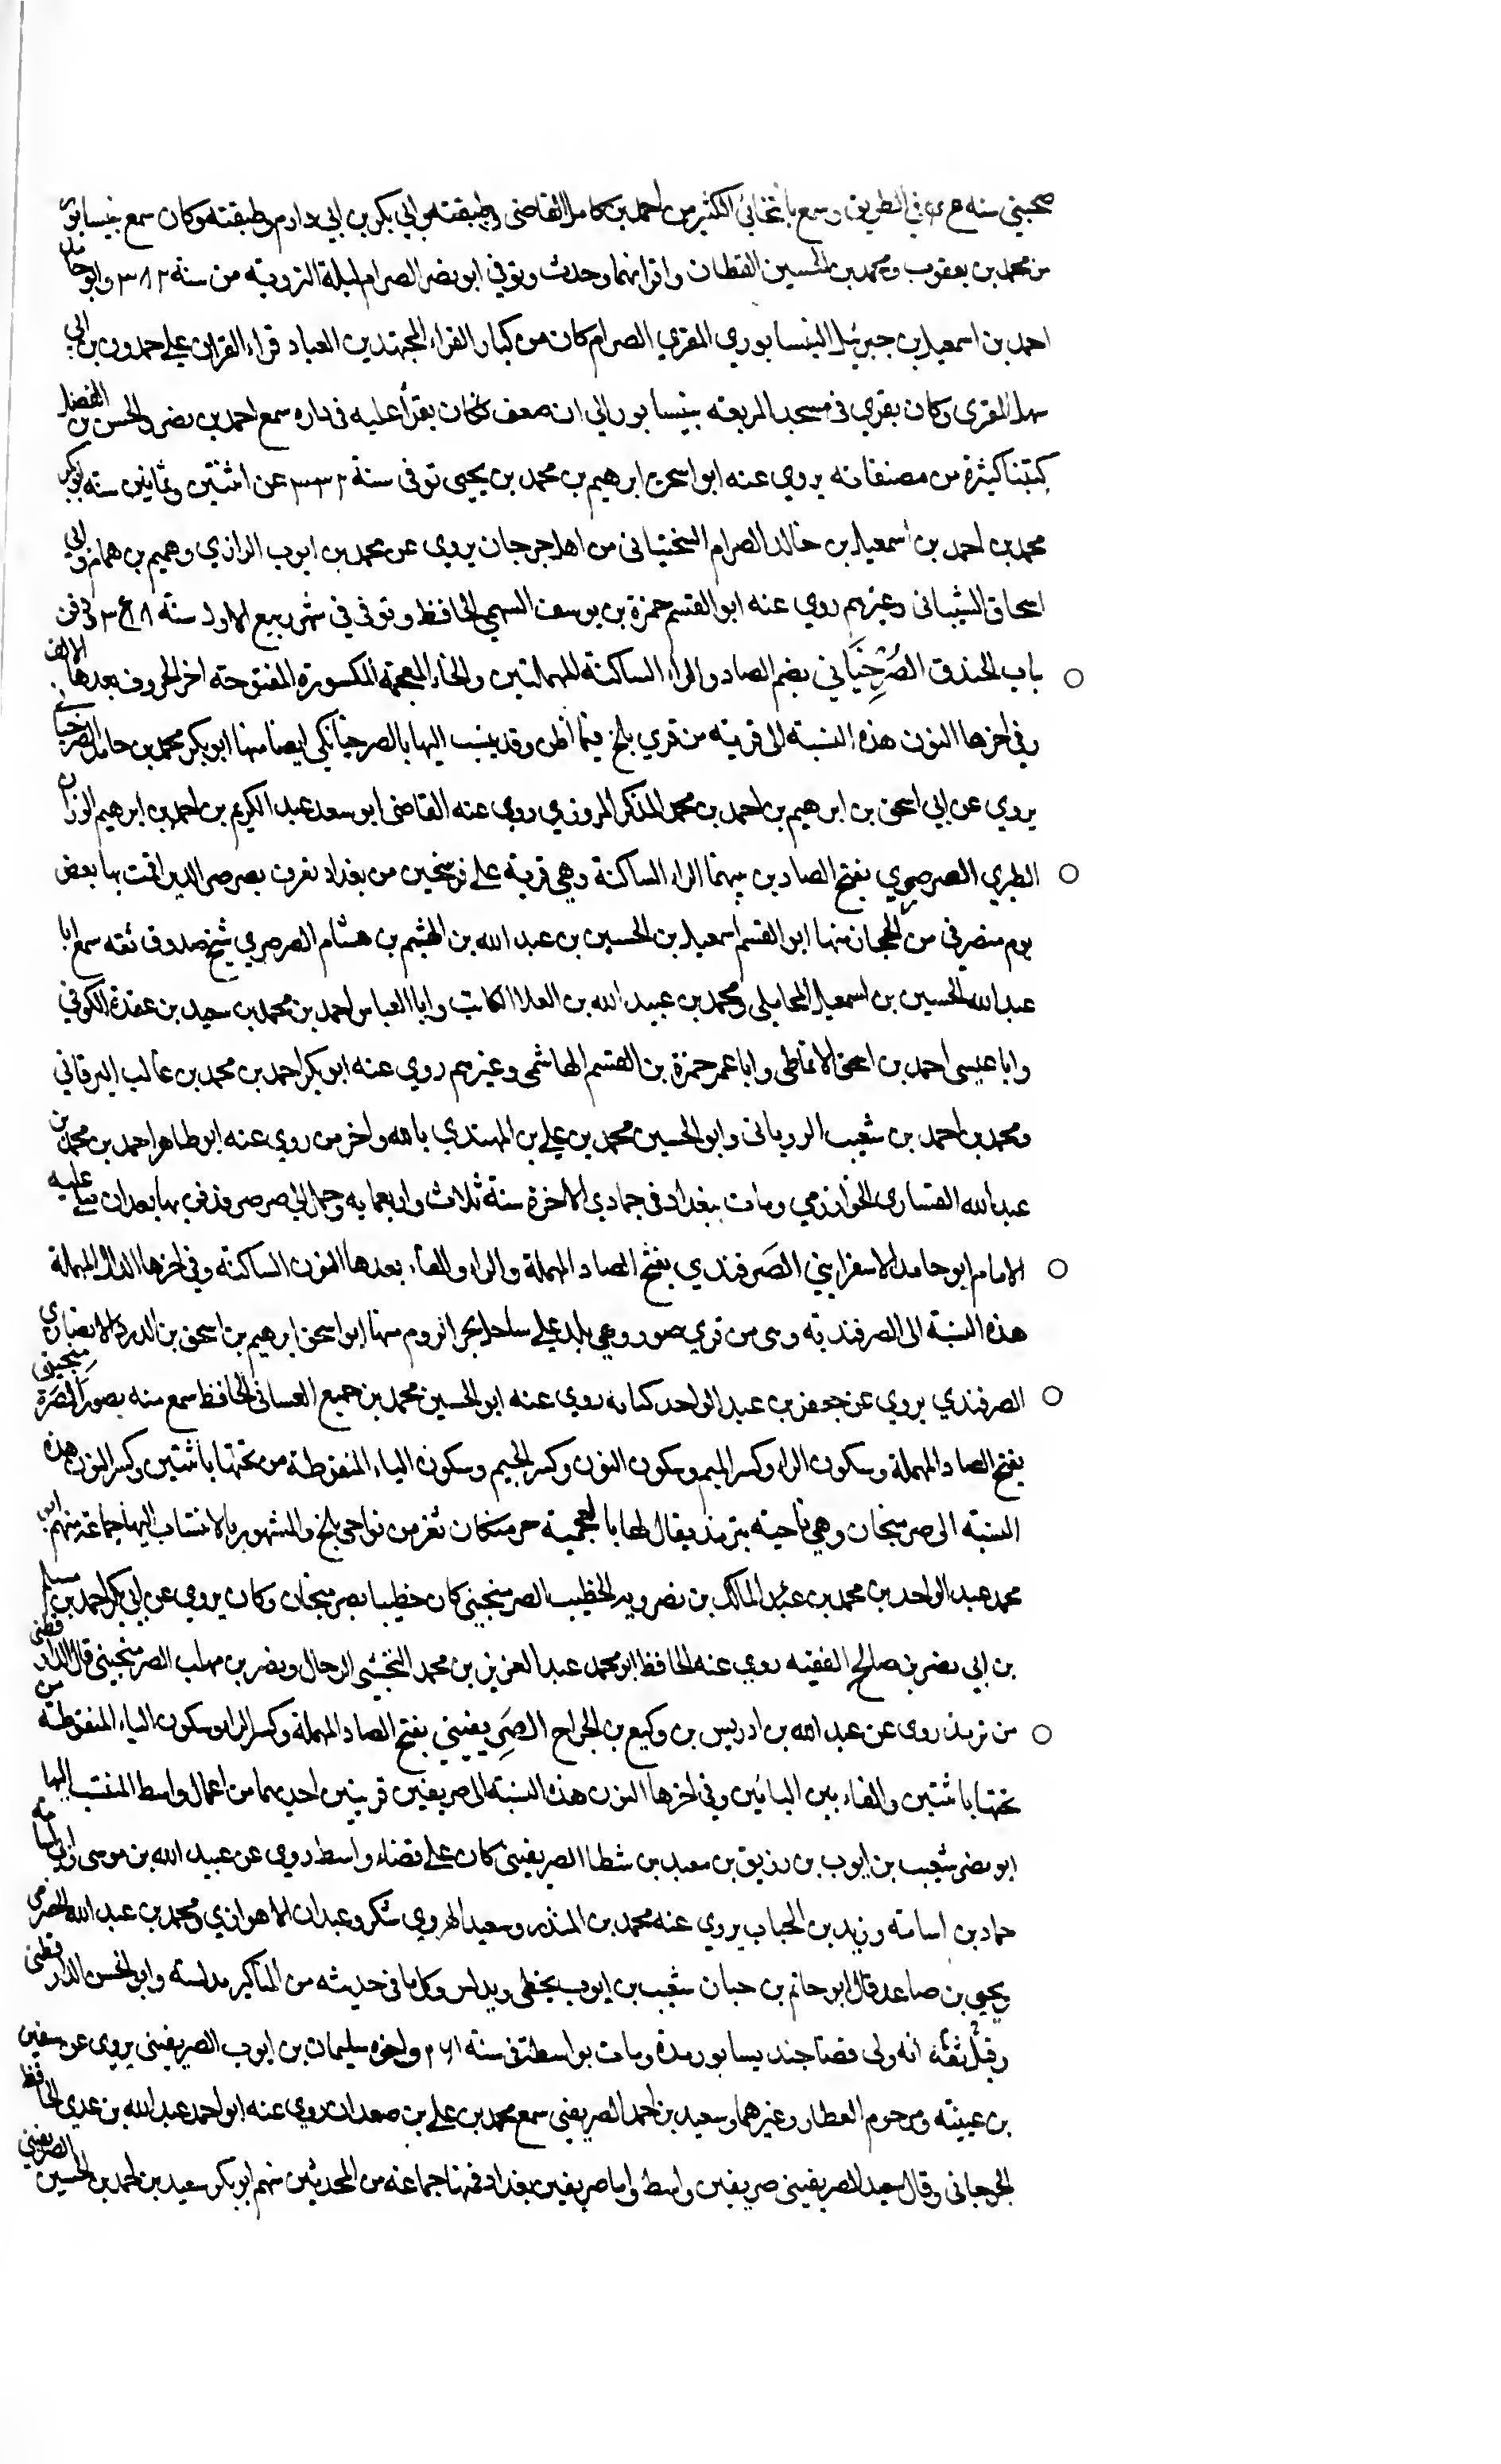 صحبني سنه في الطريق وسمع بانتخابي الكثير من احمد بن كامل القاضى وطبقته وابي بكر بن ابي دارم وطبقته وكان سمع بنيسابور
من محمد بن يعقوب ومحمد بن الحسين القطان واقرانهما وحدث وتوفي ابو نصر الصرام ليلة التروية من سنة ٣٨٢ وابو حامد
احمد بن اسمعيل بن جبرئيل النيسابوري المقري الصرام كان من كبار القراء المجتهدين العباد قراء القران على حمدون بن ابي
سهل المقرى وكان يقري في مسجد المربعة بنيسابور الي ان ضعف فكان يقرأ عليه في داره سمع احمد بن نصر والحسن بن الفضل
كتبنا كثيرة من مصنفاته يروي عنه ابو اسحق ابرهيم بن محمد بن يحيى توفى سنة ٣٣٢ عن اثنتين وثمانين سنه ابو بكر
محمد بن احمد بن اسمعيل بن خالد الصرام السختياني من اهل جرجان يروي عن محمد بن ايوب الرازي وهميم بن همام وابي
اسحاق الشيباني وغيرهم روي عنه ابو القسم حمزة بن يوسف السهمي الحافظ وتوفي في شهر ربيع الاول سنة ٣٤٨ دفن
باب الخندق الصُرخِيَاني بضم الصاد والراء الساكنة المهملتين والخاء المعجمة المكسورة المفتوحة اخر الحروف بعدها الالف
وفي اخرها النون هذه النسبة الى قرية من قري بلخ فيما اظن وقد ينسب اليها بالصرخيانكي ايضا منها ابو بكر محمد بن حامد الصرخياني
يروي عن ابي اسحق بن ابرهيم بن احمد بن محمد المذكر المروزي روي عنه القاضى ابو سعد عبد الكريم بن احمد بن ابرهيم الوزان
الطبري الصرصري بفتح الصادين بينهما الراء الساكنة وهي قرية على فرسخين من بغداد تعرف بصرصر الدير اقمت بها بعض
يوم منصرفى من الحجاز منها ابو القسم اسمعيل بن الحسين بن عبد الله بن الهيثم بن هشام الصرصري شيخ صدوق ثقه سمع ابا
عبد الله الحسين بن اسمعيل المحاملي ومحمد بن عبيد الله بن العلا الكاتب وابا العباس احمد بن محمد بن سعيد بن عقدة الكوفي
وابا عيسى احمد بن اسحق الانماطى وابا عمر حمزة بن القسم الهاشمى وغيرهم روي عنه ابو بكر احمد بن محمد بن غالب البرقاني
ومحمد بن احمد بن شعيب الروياني وابو الحسين محمد بن علي بن المهتدي بالله واخر من روي عنه ابو طاهر احمد بن محمد بن
عبد الله القساري الخوارزمي ومات ببغداد فى جمادي الاخرة سنة ثلاث واربعمايه وحمل الي صرصر فدفن بها بعد ان صلى عليه
الامام ابو حامد الاسفراييني الصَرفندي بفتح الصاد المهملة والراء والفاء بعدها النون الساكنة وفي اخرها الدال المهملة
هذه النسبة الى الصرفندية وهى من قري صور وهي بلد على ساحل بحر الروم منها ابو اسحق ابرهيم بن اسحق بن الدرداء الانصاري
الصرفندي يروي عن جعفر بن عبد الواحد كتابه روي عنه ابو الحسين محمد بن جميع الغساني الحافظ سمع منه بصور الصَرمِنجيني
بفتح الصاد المهملة وسكون الراء وكسر الميم وسكون النون وكسر الجيم وسكون الياء المنقوطة من تحتها باثنتين وكسر النون هذه
النسبة الى صرمنجان وهي ناحية بترمذ يقال لها بالعجمية جرمنكان ثغر من نواحي بلخ والمشهور بالانتساب اليها جماعة منهم ابو
محمد عبد الواحد بن محمد بن عبد المالك بن نصرويه الخطيب الصرمنجيني كان خطيبا بصرمنجان وكان يروي عن ابي بكر احمد بن مسلم
بن ابي نصر بن صالح الفقيه روي عنه الحافظ ابو محمد عبد العزيز بن محمد النخشبي الرحال ونصر بن مهلب الصرمنجيني قال الدارقطنى
من ترمذ روى عن عبد الله بن ادريس بن وكيع بن الجراح الصَرِيفيني بفتح الصاد المهملة وكسر الراء وسكون الياء المنقوطة من
تحتها باثنتين والفاء بين اليائين وفي اخرها النون هذه النسبة الى صريفين قريتين احديهما من اعمال واسط المنتسب اليها
ابو بكر شعيب بن ايوب بن رزيق بن معبد بن شطا الصريفينى كان على قضاء واسط روي عن عبيد الله بن موسى وابي اسامه
حماد بن اسامة وزيد بن الحباب يروي عنه محمد بن المنذر وسعيد الهروي شكر وعبدان الاهوازي ومحمد بن عبد الله الحضرمي
ويحيى بن صاعد قال ابو حاتم بن حبان شعيب بن ايوب يخطي ويدلس وكل ما في حديثه من المناكير مدلسة وابو الحسن الدارقطني
وقيل ثقة انه ولى قضا جنديسابور مدة ومات بواسط فى سنة ٢٦١ واخوه سليمان بن ايوب الصريفينى يروي عن سفين
بن عيينه ومرحوم العطار وغيرهما وسعيد بن احمد الصريفينى سمع محمد بن علي بن معدان روي عنه ابو احمد عبد الله بن عدي الحافظ
الجرجاني وقال سعيد الصريفينى صريفين واسط واما صريفين بغداد فمنها جماعة من المحدثين منهم ابو بكر سعيد بن احمد بن الحسين الصريفيني